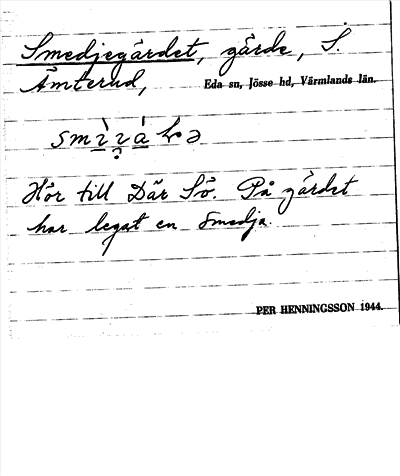 Smedjegärdet, gärde, S.
Åmterud, Eda sn, Jösse hd, Värmlands län.
Hör till Där Sö. På gärdet
har legat en Smedja.
PER HENNINGSSON 1944.